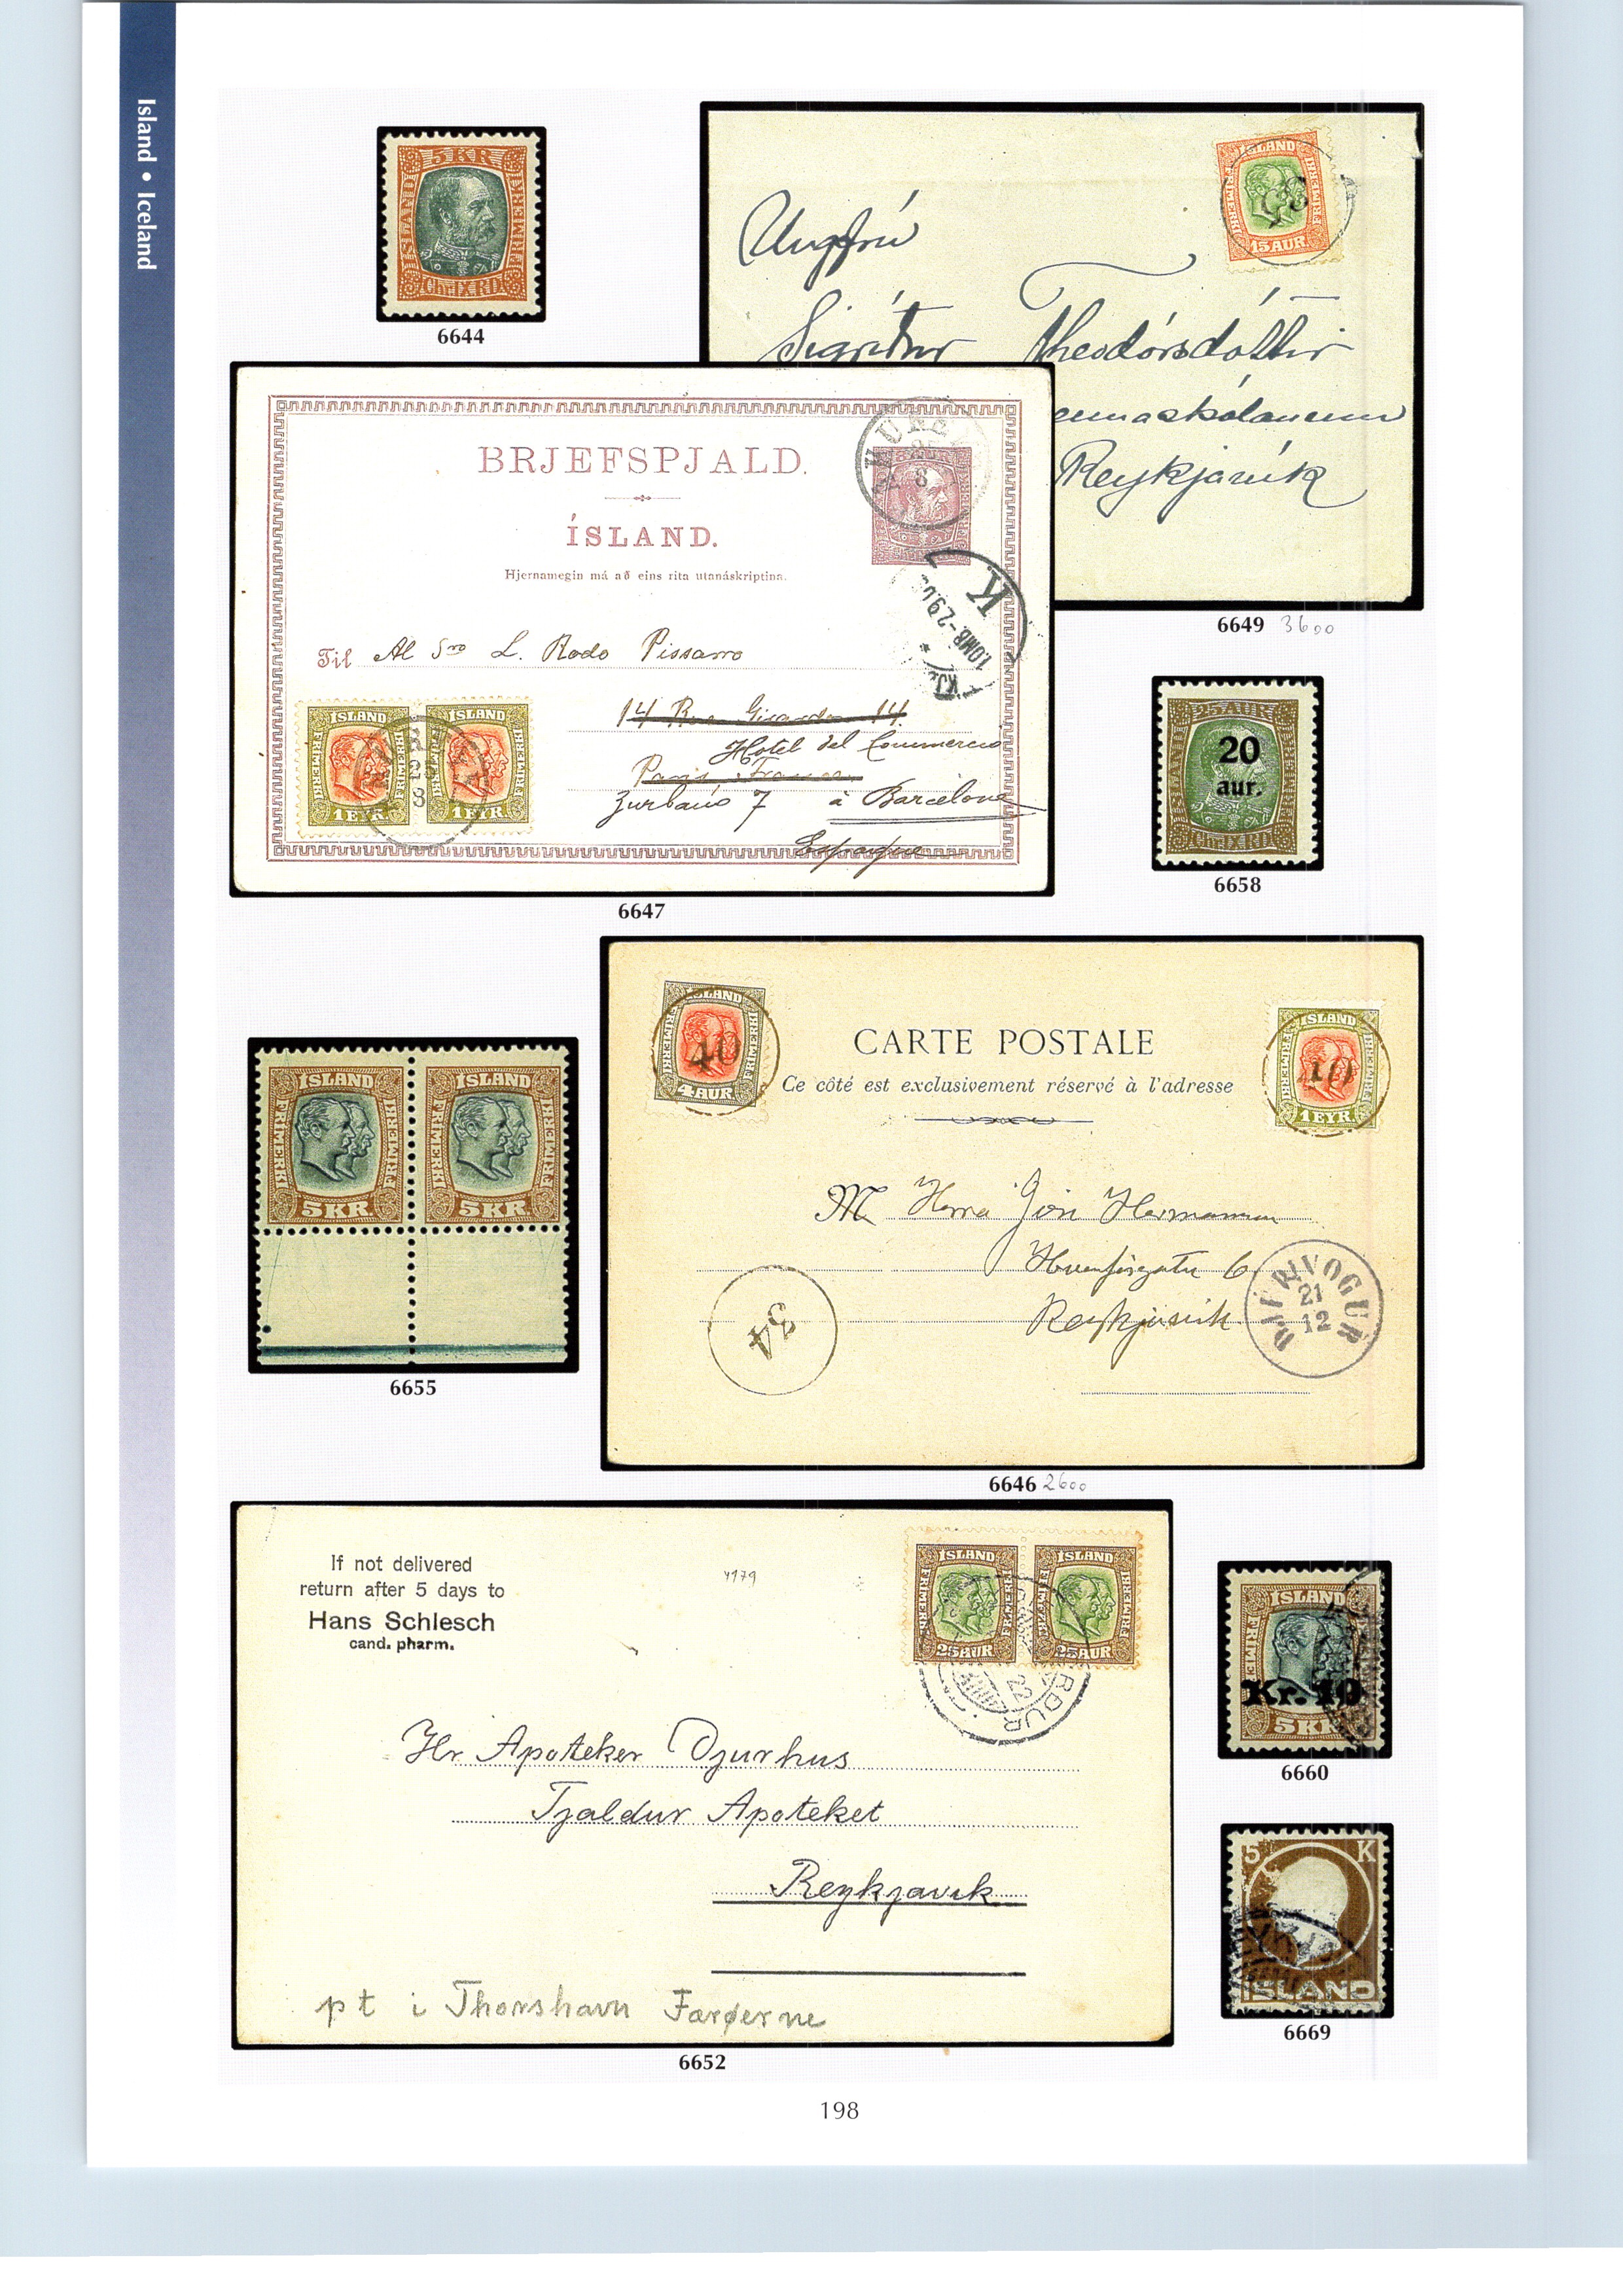 Island • Iceland
5 KR
ISLAND
FRIMERKI
Chr. IX. R.D.
6644
ÍSLAND
FRIMERKI
FRIMERKI
15 AUR
Ungfrú
Sigríður Theódórsdóttir
Reykjavík
6649 3600
BRJEFSPJALD.
ÍSLAND.
Hjernamegin má að eins rita utanáskriptina.
K
Til Al Sro L. Rodo Pissarro
14 Rue Girardon 14
Hotel del Commercio
Paris France
Zurbano 7 à Barcelone
Espagne
ÍSLAND ÍSLAND
FRIMERKI FRIMERKI
1 EYR. 1 EYR.
25
8
6647
25 AUR
20
aur.
Chr. IX. R.D.
6658
ÍSLAND ÍSLAND
FRIMERKI FRIMERKI
5 KR 5 KR
6655
ÍSLAND
FRIMERKI
40
4 AUR
ÍSLAND
FRIMERKI
40
1 EYR.
CARTE POSTALE
Ce côté est exclusivement réservé à l'adresse
M Herra Jón Hermannson
Hverfisgatu 6
Reykjavik
34
DJÚPIVOGUR
21
12
6646 2600
If not delivered
return after 5 days to
Hans Schlesch
cand. pharm.
ÍSLAND ÍSLAND
FRIMERKI FRIMERKI
25 AUR 25 AUR
22
Hr. Apoteker Djurhus
Tjaldur Apoteket
Reykjavik
pt i Thorshavn Færøerne
6652
ÍSLAND
FRIMERKI
Kr. 10
5 KR
6660
5 K
ISLAND
6669
198